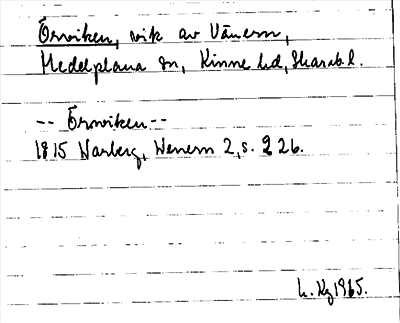 Örnviken, vik av Vänern,
Medelplana sn, Kinne hd, Skarab. l.
-- Örnviken --
1815 Warberg, Wenern 2, s. 226.
L. Kg 1965.